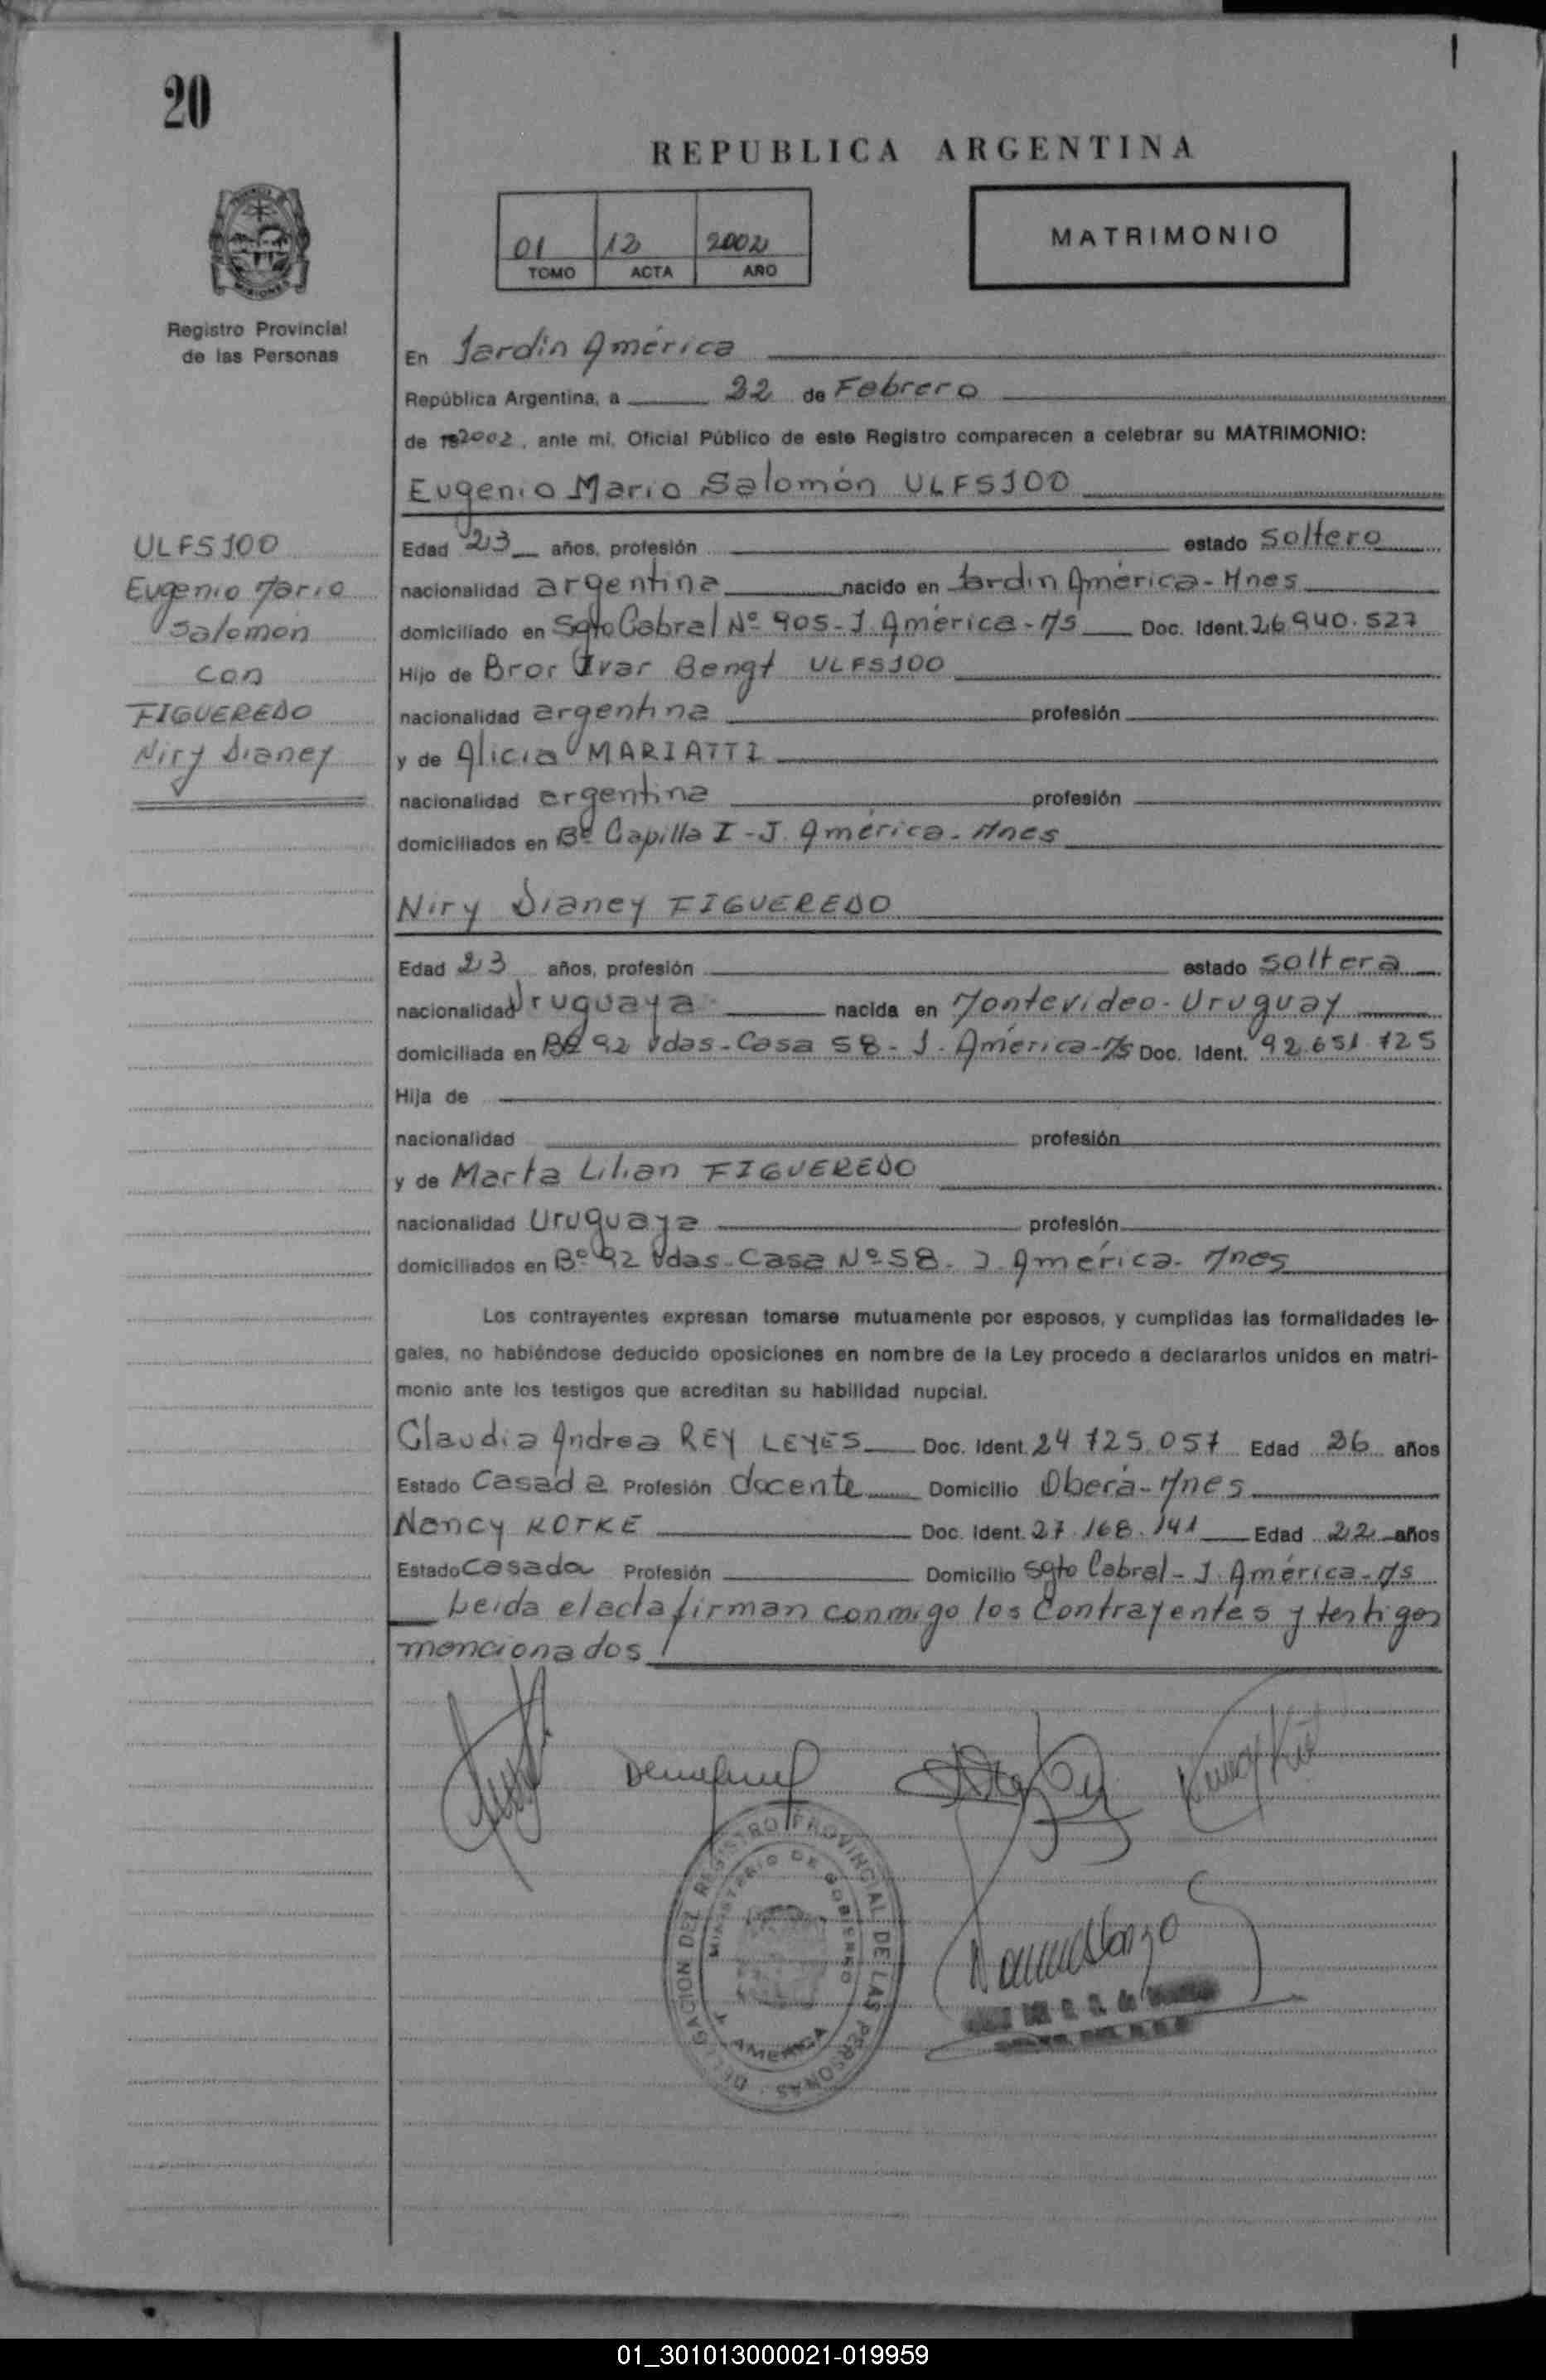 20
REPUBLICA ARGENTINA
01 12 2002
TOMO ACTA AÑO
MATRIMONIO
Registro Provincial
de las Personas
En Jardín América
República Argentina, a 22 de Febrero
de 2002, ante mí, Oficial Público de este Registro comparecen a celebrar su MATRIMONIO:
Eugenio Mario Salomón ULFSJOO
ULFSJOO
Eugenio Mario
Salomón
con
FIGUEREDO
Niry Dianey
Edad 23 años, profesión estado soltero
nacionalidad argentina nacido en Jardín América - Mnes
domiciliado en Sgto Cabral Nº 905 - J. América - Ms Doc. Ident. 26 940.527
Hijo de Bror Ivar Bengt ULFSJOO
nacionalidad argentina profesión
y de Alicia MARIATTI
nacionalidad argentina profesión
domiciliados en Bº Capilla I - J. América - Mnes
Niry Dianey FIGUEREDO
Edad 23 años, profesión estado soltera
nacionalidad Uruguaya nacida en Montevideo - Uruguay
domiciliada en Bº 92 Vdas - Casa 58 - J. América - Ms Doc. Ident. 92.651.725
Hija de
nacionalidad profesión
y de Marta Lilian FIGUEREDO
nacionalidad Uruguaya profesión
domiciliados en Bº 92 Vdas - Casa Nº 58 - J. América - Mnes
Los contrayentes expresan tomarse mutuamente por esposos, y cumplidas las formalidades le-
gales, no habiéndose deducido oposiciones en nombre de la Ley procedo a declararlos unidos en matri-
monio ante los testigos que acreditan su habilidad nupcial.
Claudia Andrea REY LEYES Doc. Ident. 24 725.057 Edad 26 años
Estado Casada Profesión docente Domicilio Oberá - Mnes
Nancy KOTKE Doc. Ident. 27.168.141 Edad 22 años
Estado Casada Profesión Domicilio Sgto Cabral - J. América - Ms
Leida el acta firman conmigo los Contrayentes y testigos
mencionados
DELEGACION DEL REGISTRO PROVINCIAL DE LAS PERSONAS
MINISTERIO DE GOBIERNO
AMERICA
01_301013000021-019959